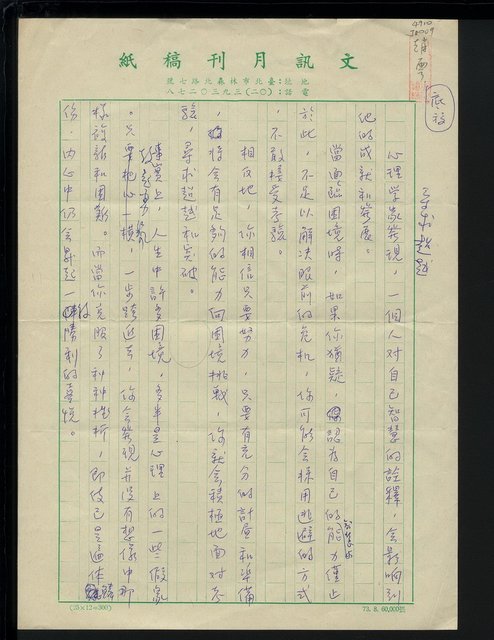 文訊月刊稿紙
地址：臺北市林森北路七號
電話：(○二)三九三○二七八
趙雲
底稿
尋求超越
心理學家發現，一個人對自己智慧的詮釋，會影響到
他的成就和發展。
當面臨困境時，如果你猶疑，認為自己的能力僅止
於此，不足以解決眼前的危機，你可能會採用逃避的方式
，不敢接受考驗。
相反地，你相信只要努力，只要有充分的計畫和準備
，將會有足夠的能力向困境挑戰，你就會積極地面對考
驗，尋求超越和突破。
事實上，人生中許多困境，多半是心理上的一些假象
。只要把心一橫，鼓起勇氣，一步跨過去，你會發現並沒有想像中那
樣設話和困難。而當你克服了種種挫折，即使已是遍體鱗
傷，內心中仍會昇起一陣勝利的喜悅。
(25×12=300)
73. 8. 60,000張